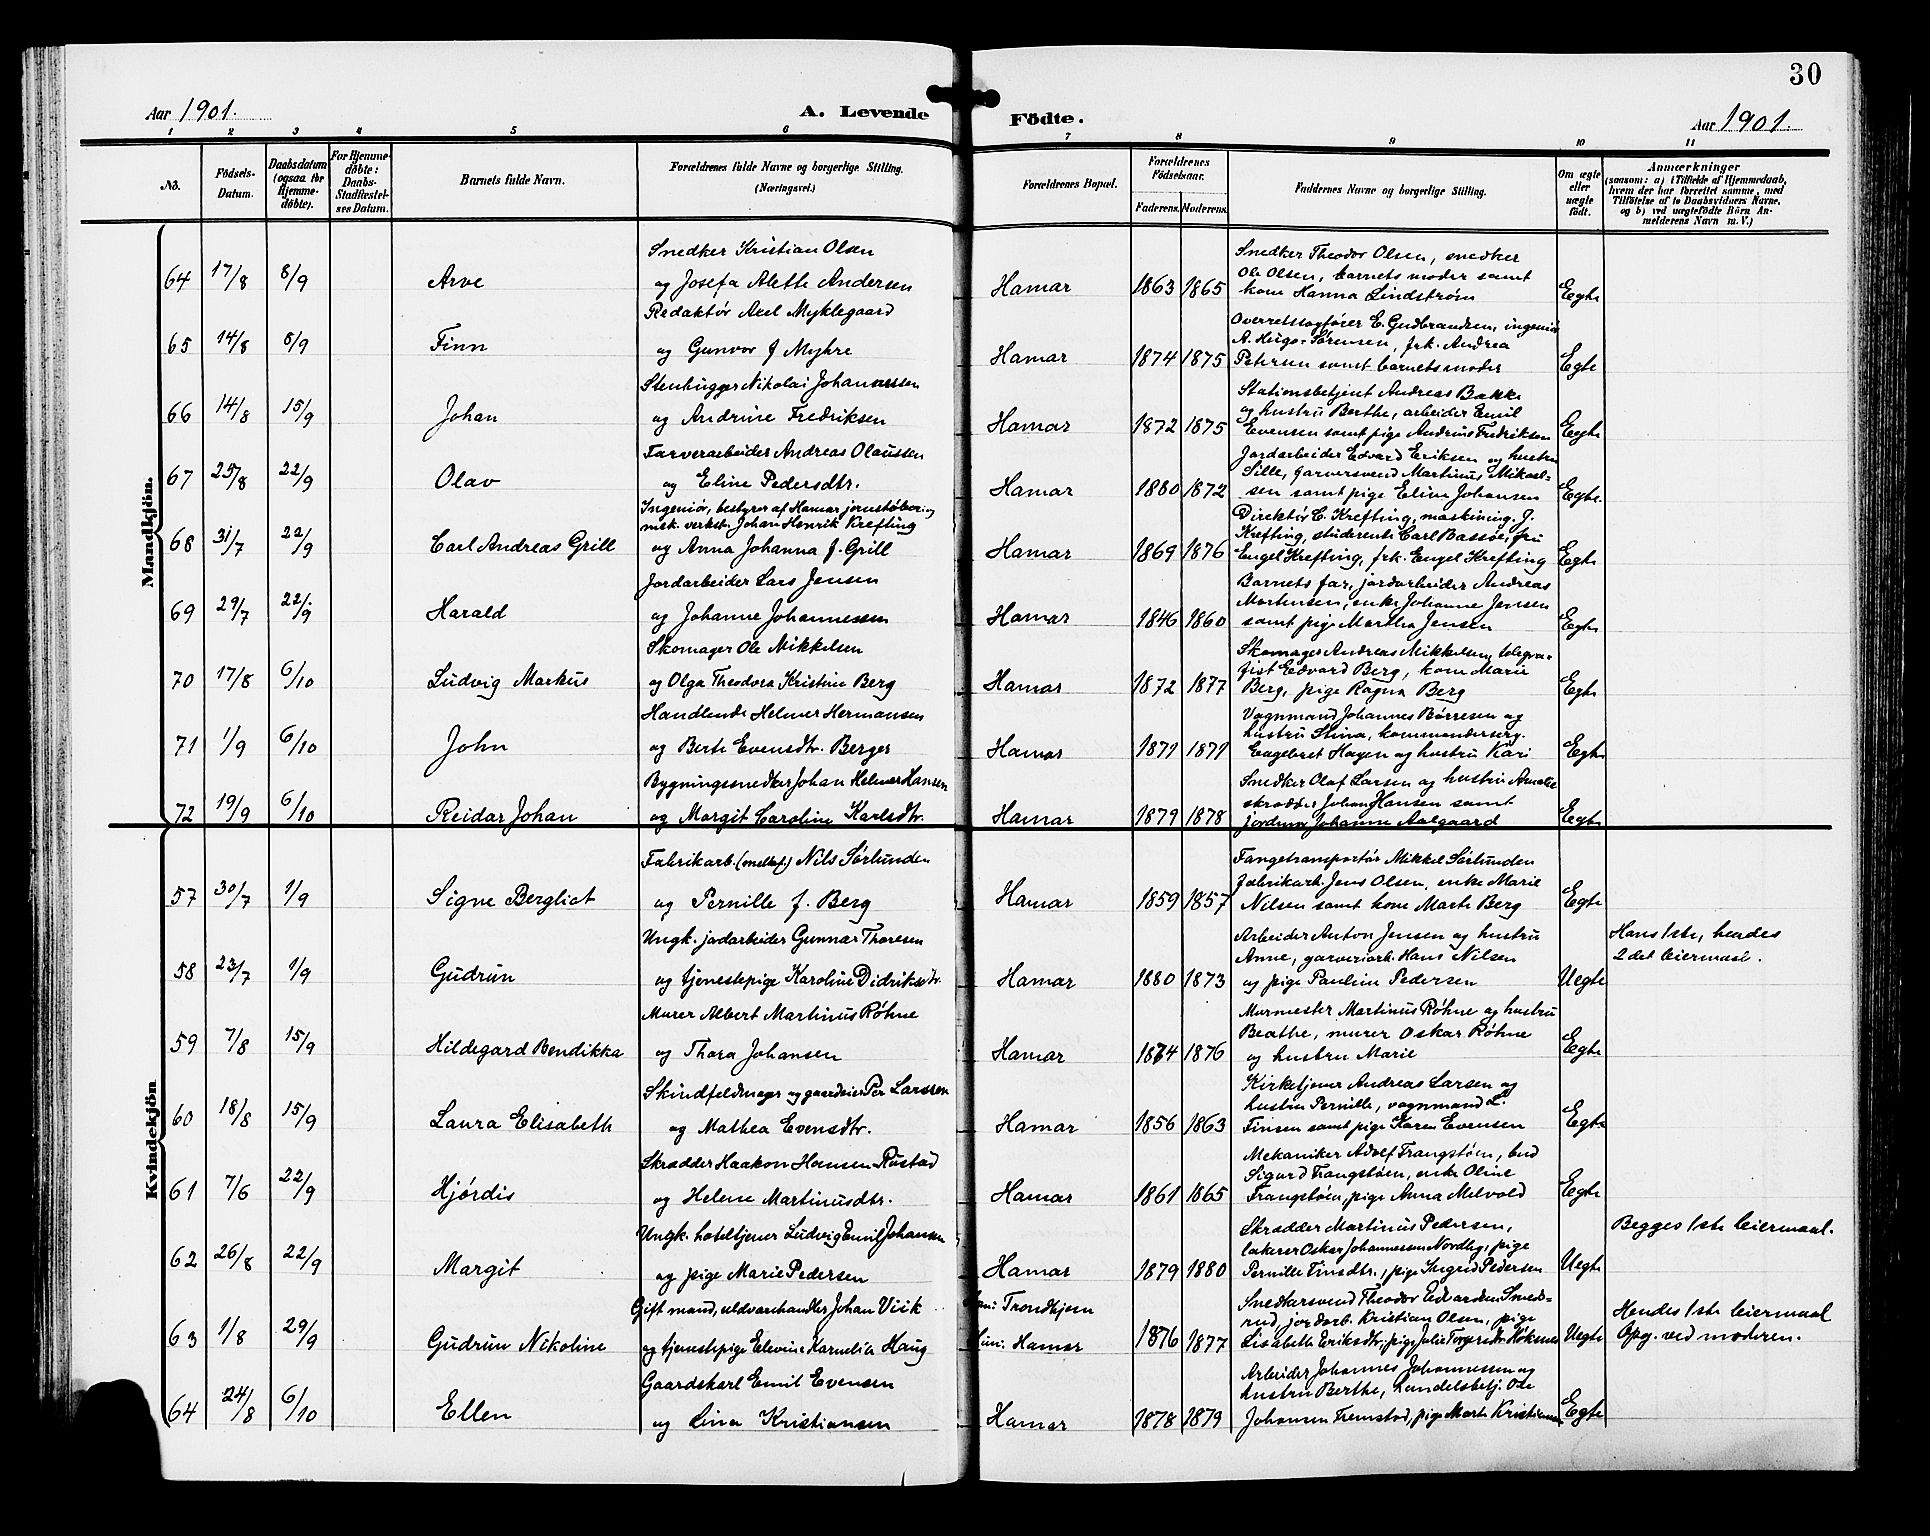 30
Aar 1901.
A. Levende Födte.
Aar 1901.
1 2 3 4 5 6 7 8 9 10 11
No.
Födsels-Datum.
Daabsdatum (ogsaa for Hjemme-döbte).
For Hjemme-döbte: Daabs-Stadfæstel-ses Datum.
Barnets fulde Navn.
Forældrenes fulde Navne og borgerlige Stilling. (Næringsvei.)
Forældrenes Bopæl.
Forældrenes Födselsaar.
Faderens. Moderens.
Faddernes Navne og borgerlige Stilling.
Om ægte eller uægte födt.
Anmærkninger
(saasom: a) i Tilfælde af Hjemmedaab,
hvem der har forrettet samme, med
Tilföielse af to Daabsvidners Navne,
og b) ved uægtefödte Börn An-
melderens Navn m. V.)
Mandkjön.
64 17/8 8/9 Arve
Snedker Kristian Olsen
og Josefa Alette Andersen
Hamar 1863 1865
Snedker Theodor Olsen, snedker
Ole Olsen, barnets moder samt
kone Hanna Lindstrøm
Egte
65 14/8 8/9 Finn
Redaktør Axel Myklegaard
og Gunvor f Myhre
Hamar 1874 1875
Overretssagfører E. Gudbrandsen, ingeniør
A. Hugo-Sørensen, frk. Andrea
Petersen samt barnets moder
Egte
66 14/8 15/9 Johan
Stenhugger Nikolai Johannessen
og Andrine Fredriksen
Hamar 1872 1875
Stationsbetjent Andreas Bakke
og hustru Berthe, arbeider Emil
Evensen samt pige Andrine Fredriksen
Egte
67 25/8 22/9 Olav
Farverarbeider Andreas Olaussen
og Eline Pedersdtr.
Hamar 1880 1872
Jordarbeider Edvard Eriksen og hustru
Sille, garversvend Martinus Mikael-
sen samt pige Eline Johansen
Egte
68 31/7 22/9 Carl Andreas Grill
Ingeniør, bestyrer af Hamar jernstøberi og
mek. verkst. Johan Henrik Krefting
og Anna Johanna f. Grill
Hamar 1869 1876
Direktør C. Krefting, maskining. J.
Krefting, studerende Carl Bassøe, fru
Engel Krefting, frk. Engel Krefting
Egte
69 29/7 22/9 Harald
Jordarbeider Lars Jensen
og Johanne Johannessen
Hamar 1846 1860
Barnets far, jordarbeider Andreas
Mortensen, enke Johanne Jensen
samt pige Martha Jensen
Egte
70 17/8 6/10 Ludvig Markus
Skomager Ole Mikkelsen
og Olga Theodora Kristine Berg
Hamar 1872 1877
Skomager Andreas Mikkelsen, telegra-
fist Edvard Berg, kone Marie
Berg, pige Ragna Berg
Egte
71 1/9 6/10 John
Handlende Helmer Hermansen
og Berte Evensdtr. Berger
Hamar 1871 1871
Vognmand Johannes Børresen og
hustru Stina, kommandersrg.
Engebret Hagen og hustru Kari
Egte
72 19/9 6/10 Reidar Johan
Bygningssnedker Johan Helmer Hansen
og Margit Caroline Karlsdtr.
Hamar 1879 1878
Snedker Olaf Larsen og hustru Amalie
skrædder Johan Hansen samt
jordmor Johanne Aalgaard
Egte
Kvindekjön
57 30/7 1/9 Signe Bergliot
Fabrikarb. (melkef.) Nils Sørlunden
og Pernille f. Berg
Hamar 1859 1857
Fangetransportør Mikkel Sørlunden
fabrikarb. Jens Olsen, enke Marie
Nilsen samt kone Marte Berg
Egte
58 23/7 1/9 Gudrun
Ungk. jordarbeider Gunnar Thoresen
og tjenestepige Karoline Didriksdtr.
Hamar 1880 1873
Arbeider Anton Jensen og hustru
Anne, garveriarb. Hans Nilsen
og pige Pauline Pedersen
Uegte
Hans 1ste, hendes
2det leiermaal.
59 7/8 15/9 Hildegard Bendikka
Murer Albert Martinus Røhne
og Thora Johansen
Hamar 1874 1876
Murmester Martinus Røhne og hustru
Beathe, murer Oskar Røhne
og hustru Marie
Egte
60 18/8 15/9 Laura Elisabeth
Skindfeldmager og gaardeier Per Larssen
og Mathea Evensdtr.
Hamar 1856 1863
Kirketjener Andreas Larsen og
hustru Pernille, vognmand L.
Finsen samt pige Karen Evensen
Egte
61 7/6 22/9 Hjørdis
Skrædder Haakon Hansen Rustad
og Helene Martinusdtr.
Hamar 1861 1865
Mekaniker Adolf Frangstøen, bud
Sigurd Frangstøen, enke Oline
Frangstøen, pige Anna Melvold
Egte
62 26/8 22/9 Margit
Ungk. hoteltjener Ludvig Emil Johansen
og pige Marie Pedersen
Hamar 1879 1880
Skrædder Martinus Pedersen,
lakerer Oskar Johannessen Nordby, pige
Pernille Finsdtr., pige Ingrid Pedersen
Uegte
Begges 1ste leiermaal.
63 1/8 29/9 Gudrun Nikoline
Gift mand, uldvarehandler Johan Viik
og tjenestepige Elevine Karnelia Haug
Trondhjem
Hamar 1876 1877
Snedkersvend Theodor Edvardsen Smeds-
rud, jordarb. Kristian Olsen, pige
Lisabeth Eriksdtr., pige Julie
Uegte
Hendes 1ste leiermaal
Opg. ved moderen.
64 24/8 6/10 Ellen
Gaardskarl Emil Evensen
og Lina Kristiansen
Hamar 1878 1879
Arbeider Johannes Johannessen og
hustru Berthe, Ole
Johansen Fremstad, pige Marte Kristiansen
Egte